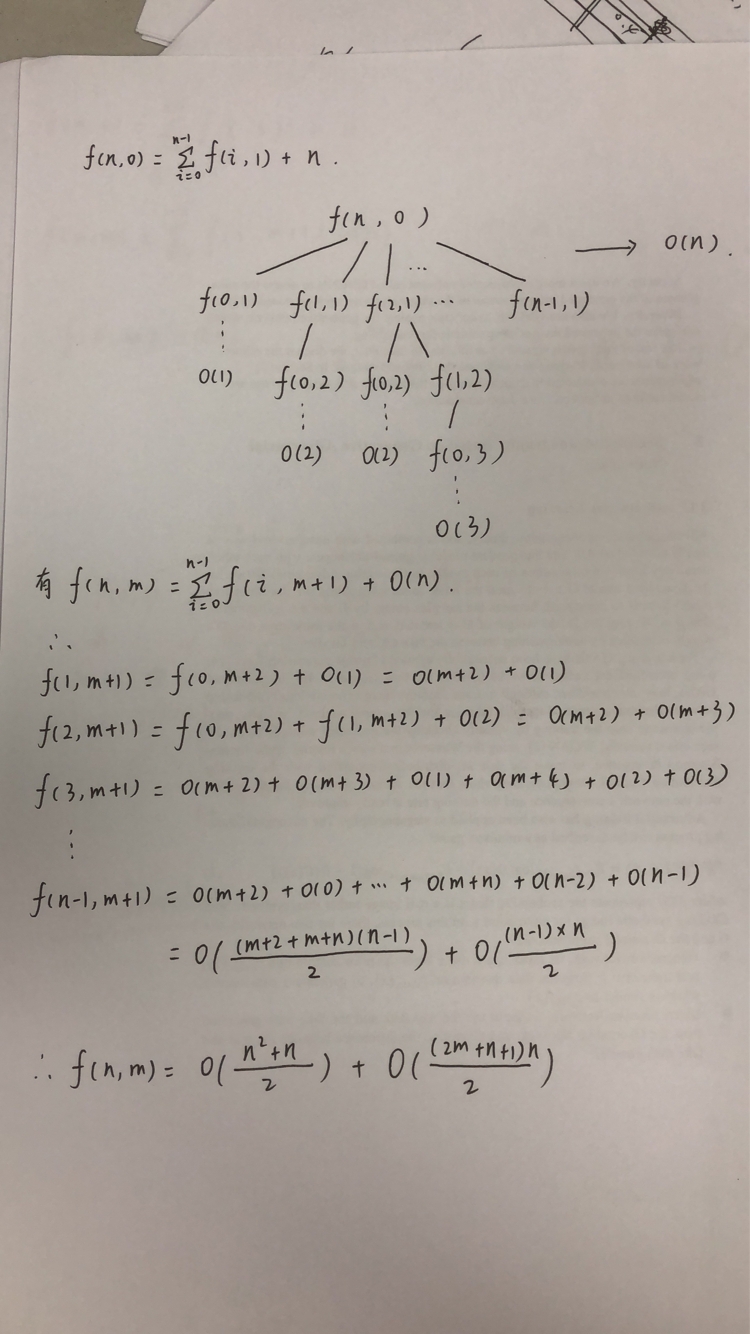 f(n,0) = Σ_{i=0}^{n-1} f(i,1) + n .
f(n,0)
⟶ O(n).
f(0,1) f(1,1) f(2,1) ... f(n-1,1)
O(1) f(0,2) f(0,2) f(1,2)
O(2) O(2) f(0,3)
O(3)
有 f(n,m) = Σ_{i=0}^{n-1} f(i,m+1) + O(n).
∴
f(1,m+1) = f(0,m+2) + O(1) = O(m+2) + O(1)
f(2,m+1) = f(0,m+2) + f(1,m+2) + O(2) = O(m+2) + O(m+3)
f(3,m+1) = O(m+2) + O(m+3) + O(1) + O(m+4) + O(2) + O(3)
⋮
f(n-1,m+1) = O(m+2) + O(0) + ... + O(m+n) + O(n-2) + O(n-1)
= O((m+2+m+n)(n-1)/2) + O((n-1)×n/2)
∴ f(n,m) = O(n²+n/2) + O((2m+n+1)n/2)